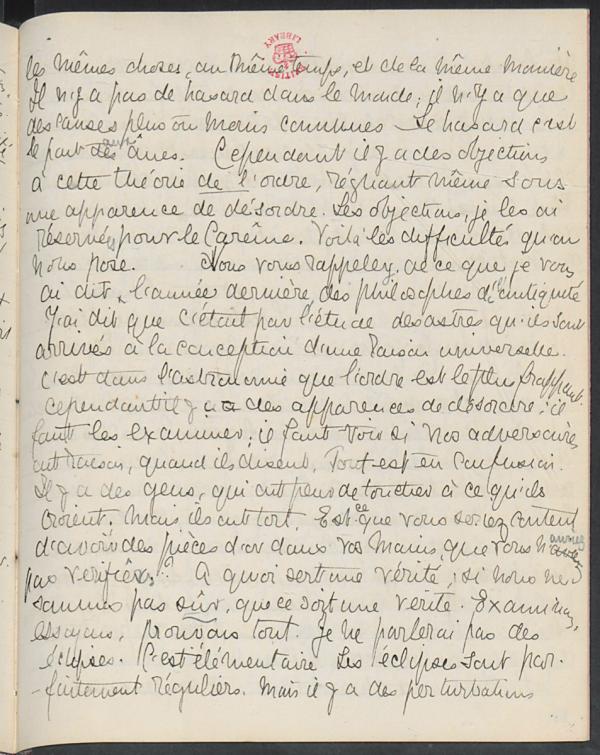 les mêmes choses, au même temps, et de la même manière
Il n'y a pas de hasard dans le monde; il n'y a que
des causes plus ou moins connues Le hasard c'est
le pont aux ânes. Cependant il y a des objections
à cette théorie de l'ordre, régnant même sous
une apparence de désordre. Les objections, je les ai
réservées pour le Carême. Voilà les difficultés qu'on
nous pose. Vous vous rappelez, de ce que je vous
ai dit, l'année dernière, des philosophes de l'antiquité
J'ai dit que c'était par l'étude des astres qu'ils sont
arrivés à la conception d'une raison universelle.
C'est dans l'astronomie que l'ordre est le plus frappant.
cependant il y a des apparences de désordre; il
faut les examiner; il faut voir si nos adversaires
ont raison, quand ils disent, Tout est en confusion.
Il y a des gens, qui ont peur de toucher à ce qu'ils
croient. Mais, ils ont tort. Est-ce que vous seriez content
d'avoir des pièces d'or dans vos mains, que vous n'auriez
pas vérifiées? A quoi sert une vérité, si nous ne
sommes pas sûr, que ce soit une verité. Examinons,
essayons, prouvons tout. Je ne parlerai pas des
éclipses. C'est élémentaire Les éclipses sont par-
-faitement réguliers. Mais il y a des perturbations
BRITISH LIBRARY